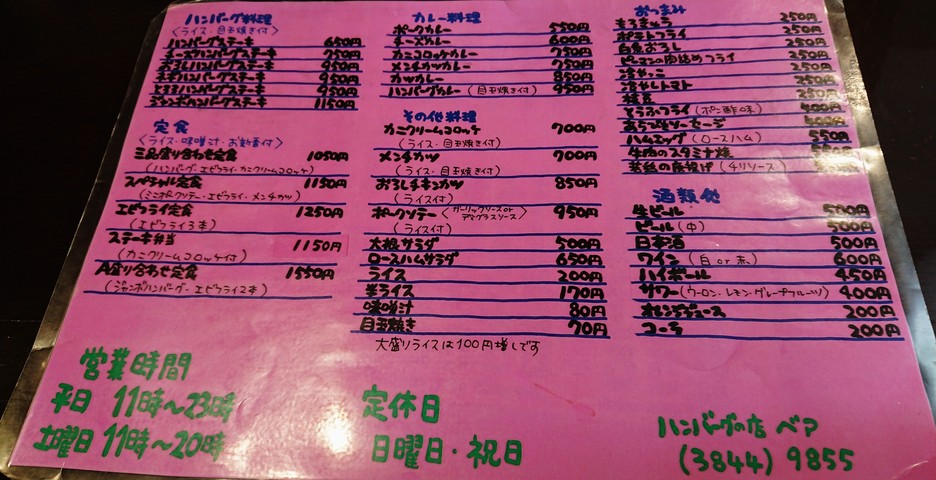 ハンバーグ料理
〈ライス・目玉焼き付〉
ハンバーグステーキ 650円
チーズハンバーグステーキ 750円
おろしハンバーグステーキ 950円
ネギハンバーグステーキ 950円
とろろハンバーグステーキ 950円
ジャンボハンバーグステーキ 1150円
定食
〈ライス・味噌汁・お新香付〉
三品盛り合わせ定食 1050円
(ハンバーグ・エビフライ・カニクリームコロッケ)
スペシャル定食 1150円
(ミニポークソテー・エビフライ・メンチカツ)
エビフライ定食 1250円
(エビフライ3本)
ステーキ弁当 1150円
(カニクリームコロッケ付)
A盛り合わせ定食 1550円
(ジャンボハンバーグ・エビフライ2本)
営業時間
平日 11時〜23時
土曜日 11時〜20時
カレー料理
ポークカレー 550円
チーズカレー 600円
カニコロッケカレー 750円
メンチカツカレー 750円
カツカレー 850円
ハンバーグカレー (目玉焼き付) 950円
その他料理
カニクリームコロッケ 700円
(ライス・目玉焼き付)
メンチカツ 700円
(ライス・目玉焼き付)
おろしチキンカツ 850円
(ライス付)
ポークソテー 〈ガーリックソース or デミグラスソース〉 950円
(ライス付)
大根サラダ 500円
ロースハムサラダ 650円
ライス 200円
半ライス 170円
味噌汁 80円
目玉焼き 70円
大盛りライスは100円増しです
定休日
日曜日・祝日
おつまみ
もろきゅう 250円
ポテトフライ 250円
白魚おろし 250円
ピーマンの肉詰めフライ 250円
冷やっこ 250円
冷やしトマト 250円
枝豆 250円
とうふフライ (ポン酢味) 400円
あらびきソーセージ
ハムエッグ (ロースハム) 550円
牛肉のスタミナ焼
若鶏の唐揚げ (チリソース)
酒類 他
生ビール 500円
ビール (中) 500円
日本酒 500円
ワイン (白 or 赤) 600円
ハイボール 450円
サワー (ウーロン・レモン・グレープフルーツ) 400円
オレンジジュース 200円
コーラ 200円
ハンバーグの店 ベア
(3844) 9855